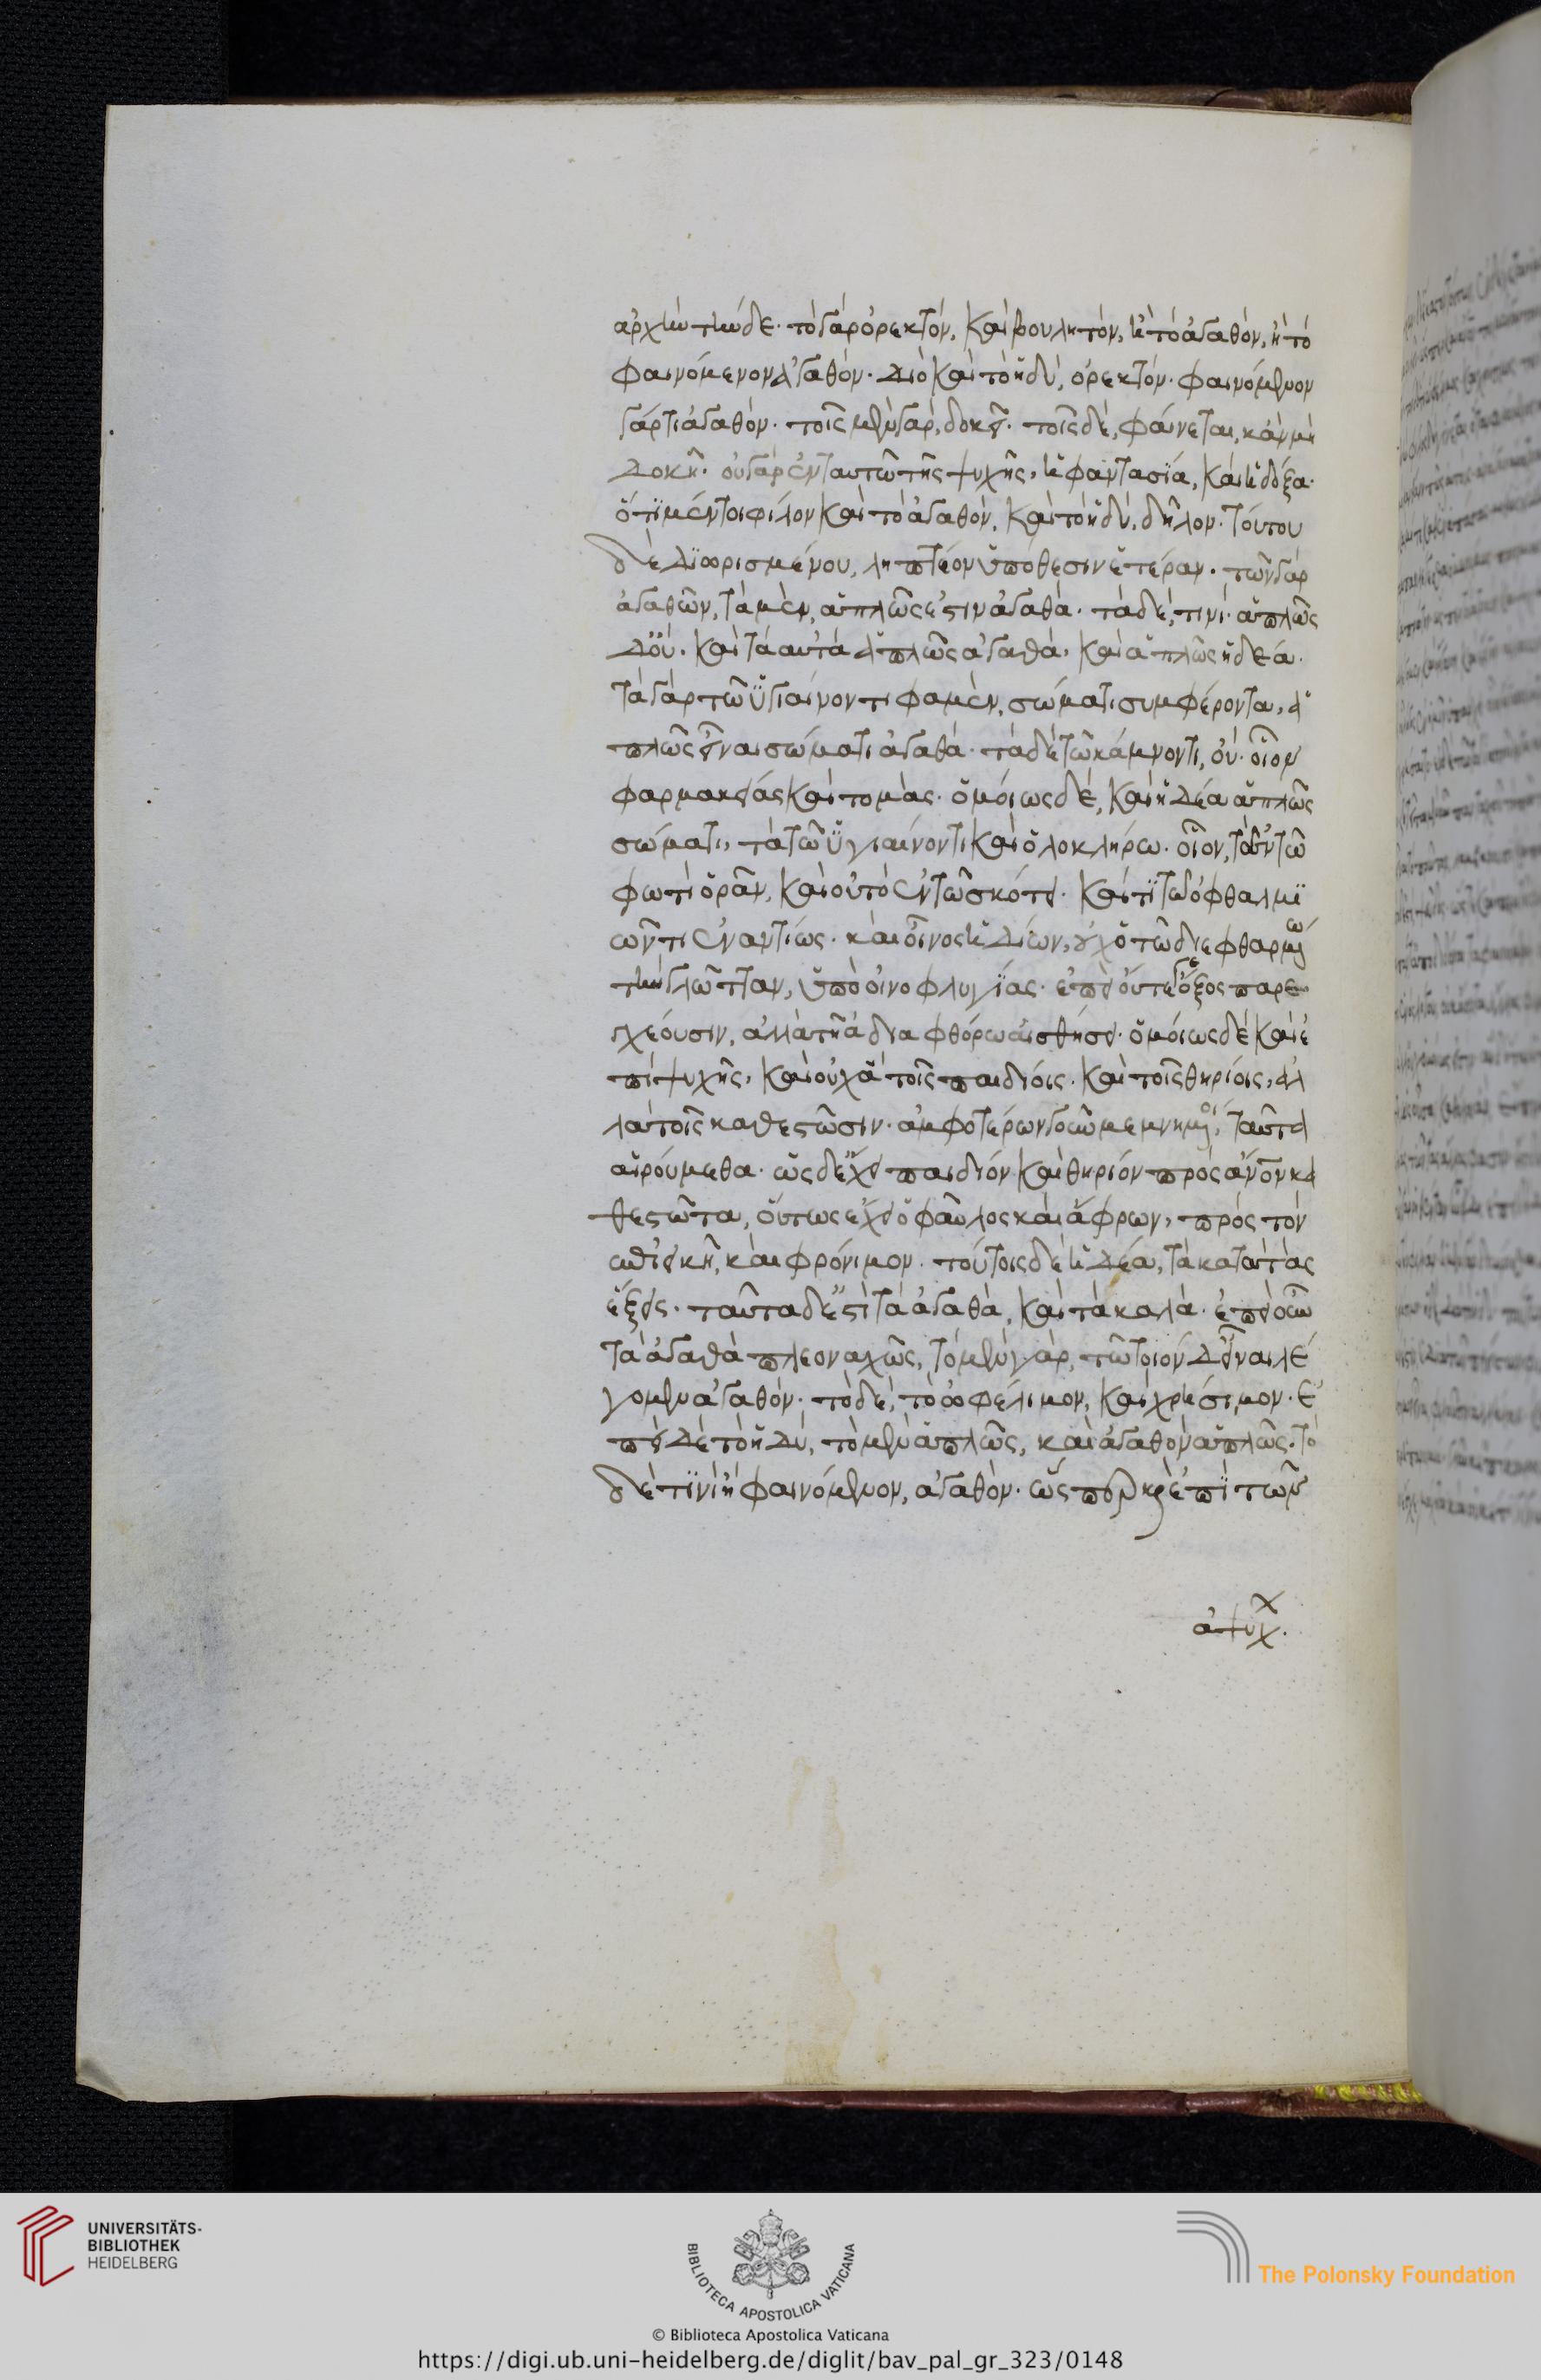 ἀρχὴν τήνδε· τὸ γὰρ ὀρεκτὸν, καὶ βουλητὸν, ἢ τὸ ἀγαθὸν, ἢ τὸ
φαινόμενον ἀγαθόν· διὸ καὶ τὸ ἡδὺ, ὀρεκτόν· φαινόμενον
γάρ τι ἀγαθόν· τοῖς μὲν γὰρ, δοκεῖ· τοῖς δὲ, φαίνεται, κἂν μὴ
δοκῇ· οὐ γὰρ ἐν ταυτῶ τῆς ψυχῆς, ἡ φαντασΐα, καὶ ἡ δόξα·
ὅτϊ μέντοι φίλον καὶ τὸ ἀγαθὸν, καὶ τὸ ἡδὺ, δῆλον· τούτου
δὲ διωρισμένου, ληπτέον ὑπόθεσιν ἑτέραν· τῶν γὰρ
ἀγαθῶν, τὰ μὲν, ἁπλῶς ἐστιν ἀγαθά· τὰ δὲ, τινί· ἁπλῶς
δ' οὔ· καὶ τὰ αὐτὰ ἁπλῶς ἀγαθὰ, καὶ ἁπλῶς ἡδέα·
τὰ γὰρ τῶ ὑγιαίνοντι φαμὲν, σώματι συμφέροντα, ἁ
πλῶς εἶναι σώματι ἀγαθά· τὰ δὲ τῶ κάμνοντι, οὔ· οἷον
φαρμακείας καὶ τομάς· ὁμοίως δὲ, καὶ ἡδέα ἁπλῶς
σώματι, τὰ τῶ ὑγιαίνοντι καὶ ὁλοκλήρω· οἷον, τὸ ἐν τῶ
φωτὶ ὁρᾶν, καὶ οὐ τὸ ἐν τῶ σκότει· καίτϊ τῶ ὀφθαλμϊ
ῶντι ἐναντίως· καὶ οἶνος ἡδίων, οὐχ ὁ τῶ διεφθαρμένω
τὴν γλῶτταν, ὑπὸ οἰνοφλυγίας· ἐπεὶ οὔτε ὄξος παρε
γχέουσιν, ἀλλὰ τῆ ἀδιαφθόρω αἰσθήσει· ὁμοίως δὲ καὶ ἐ
πὶ ψυχῆς, καὶ οὐχ ἃ τοῖς παιδίοις· καὶ τοῖς θηρίοις, ἀλ
λὰ τοῖς καθεστῶσιν· ἀμφοτέρων γοῦν μεμνημένοι, ταῦτα
αἱρούμεθα· ὡς δ' ἔχει παιδίον καὶ θηρίον πρὸς ἄνθρωπον κα
θεστῶτα, οὕτως ἔχει ὁ φαῦλος καὶ ἄφρων, πρὸς τὸν
ἐπιεικῆ, καὶ φρόνιμον· τούτοις δὲ ἡδέα, τὰ κατὰ τὰς
ἕξεις· ταῦτα δ' ἐστὶ τὰ ἀγαθὰ, καὶ τὰ καλά· ἐπεὶ οὖν
τὰ ἀγαθὰ πλεοναχῶς, τὸ μὲν γὰρ, τῶ τοιόνδ' εἶναι λέ
γομεν ἀγαθόν· τὸ δὲ, τὸ ὠφέλιμον, καὶ χρήσιμον· ἔ
πει δὲ τὸ ἡδὺ, τὸ μὲν ἁπλῶς, καὶ ἀγαθὸν ἁπλῶς· τὸ
δὲ τϊνὶ ἢ φαινόμενον, ἀγαθόν· ὥσπερ καὶ ἐπὶ τῶν
ἀψύχ.
UNIVERSITÄTS-
BIBLIOTHEK
HEIDELBERG
BIBLIOTECA APOSTOLICA VATICANA
The Polonsky Foundation
© Biblioteca Apostolica Vaticana
https://digi.ub.uni-heidelberg.de/diglit/bav_pal_gr_323/0148